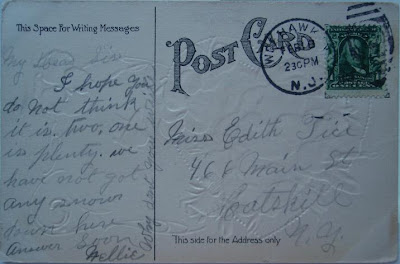 This Space For Writing Messages
My Dear Sis
I hope you
do not think
it is two, one
is plenty. we
have not got
any snow
down here
Answer Soon
Nellie
Why don't you
POST CARD
230PM
N.J.
Miss Edith Tice
468 Main St
Catskill
N.Y.
This side for the Address only